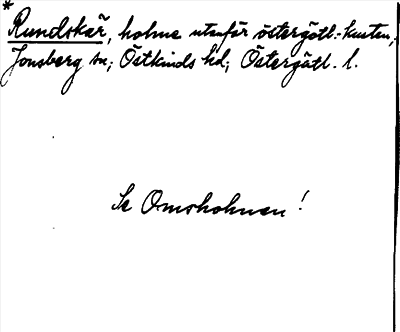 * Rundskär, holme utanför östergötl.-kusten,
Jonsberg sn; Östkinds hd; Östergötl. l.
Se Omsholmen!